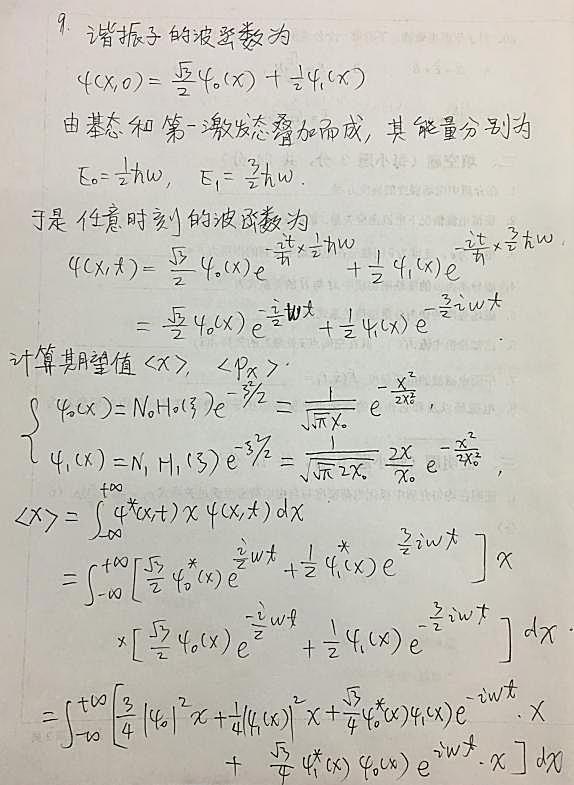 9. 谐振子的波函数为
ψ(x,0) = √3/2 ψ₀(x) + 1/2 ψ₁(x)
由基态和第一激发态叠加而成, 其能量分别为
E₀ = 1/2 ħω, E₁ = 3/2 ħω.
于是任意时刻的波函数为
ψ(x,t) = √3/2 ψ₀(x) e^{-it/ħ × 1/2 ħω} + 1/2 ψ₁(x) e^{-it/ħ × 3/2 ħω}.
= √3/2 ψ₀(x) e^{-i/2 ωt} + 1/2 ψ₁(x) e^{-3/2 iωt}.
计算期望值 <x>, <Pₓ>.
{ ψ₀(x) = N₀H₀(ξ) e^{-ξ²/2} = 1/√(√π x₀) e^{-x²/2x₀²}.
ψ₁(x) = N₁ H₁(ξ) e^{-ξ²/2} = 1/√(√π 2x₀) 2x/x₀ e^{-x²/2x₀²},
<x> = ∫_{-∞}^{+∞} ψ*(x,t) x ψ(x,t) dx
= ∫_{-∞}^{+∞} [√3/2 ψ₀*(x) e^{i/2 ωt} + 1/2 ψ₁*(x) e^{3/2 iωt}] x
× [√3/2 ψ₀(x) e^{-i/2 ωt} + 1/2 ψ₁(x) e^{-3/2 iωt}] dx.
= ∫_{-∞}^{+∞} [3/4 |ψ₀|² x + 1/4 |ψ₁(x)|² x + √3/4 ψ₀*(x) ψ₁(x) e^{-iωt}·x
+ √3/4 ψ₁*(x) ψ₀(x) e^{iωt}·x] dx